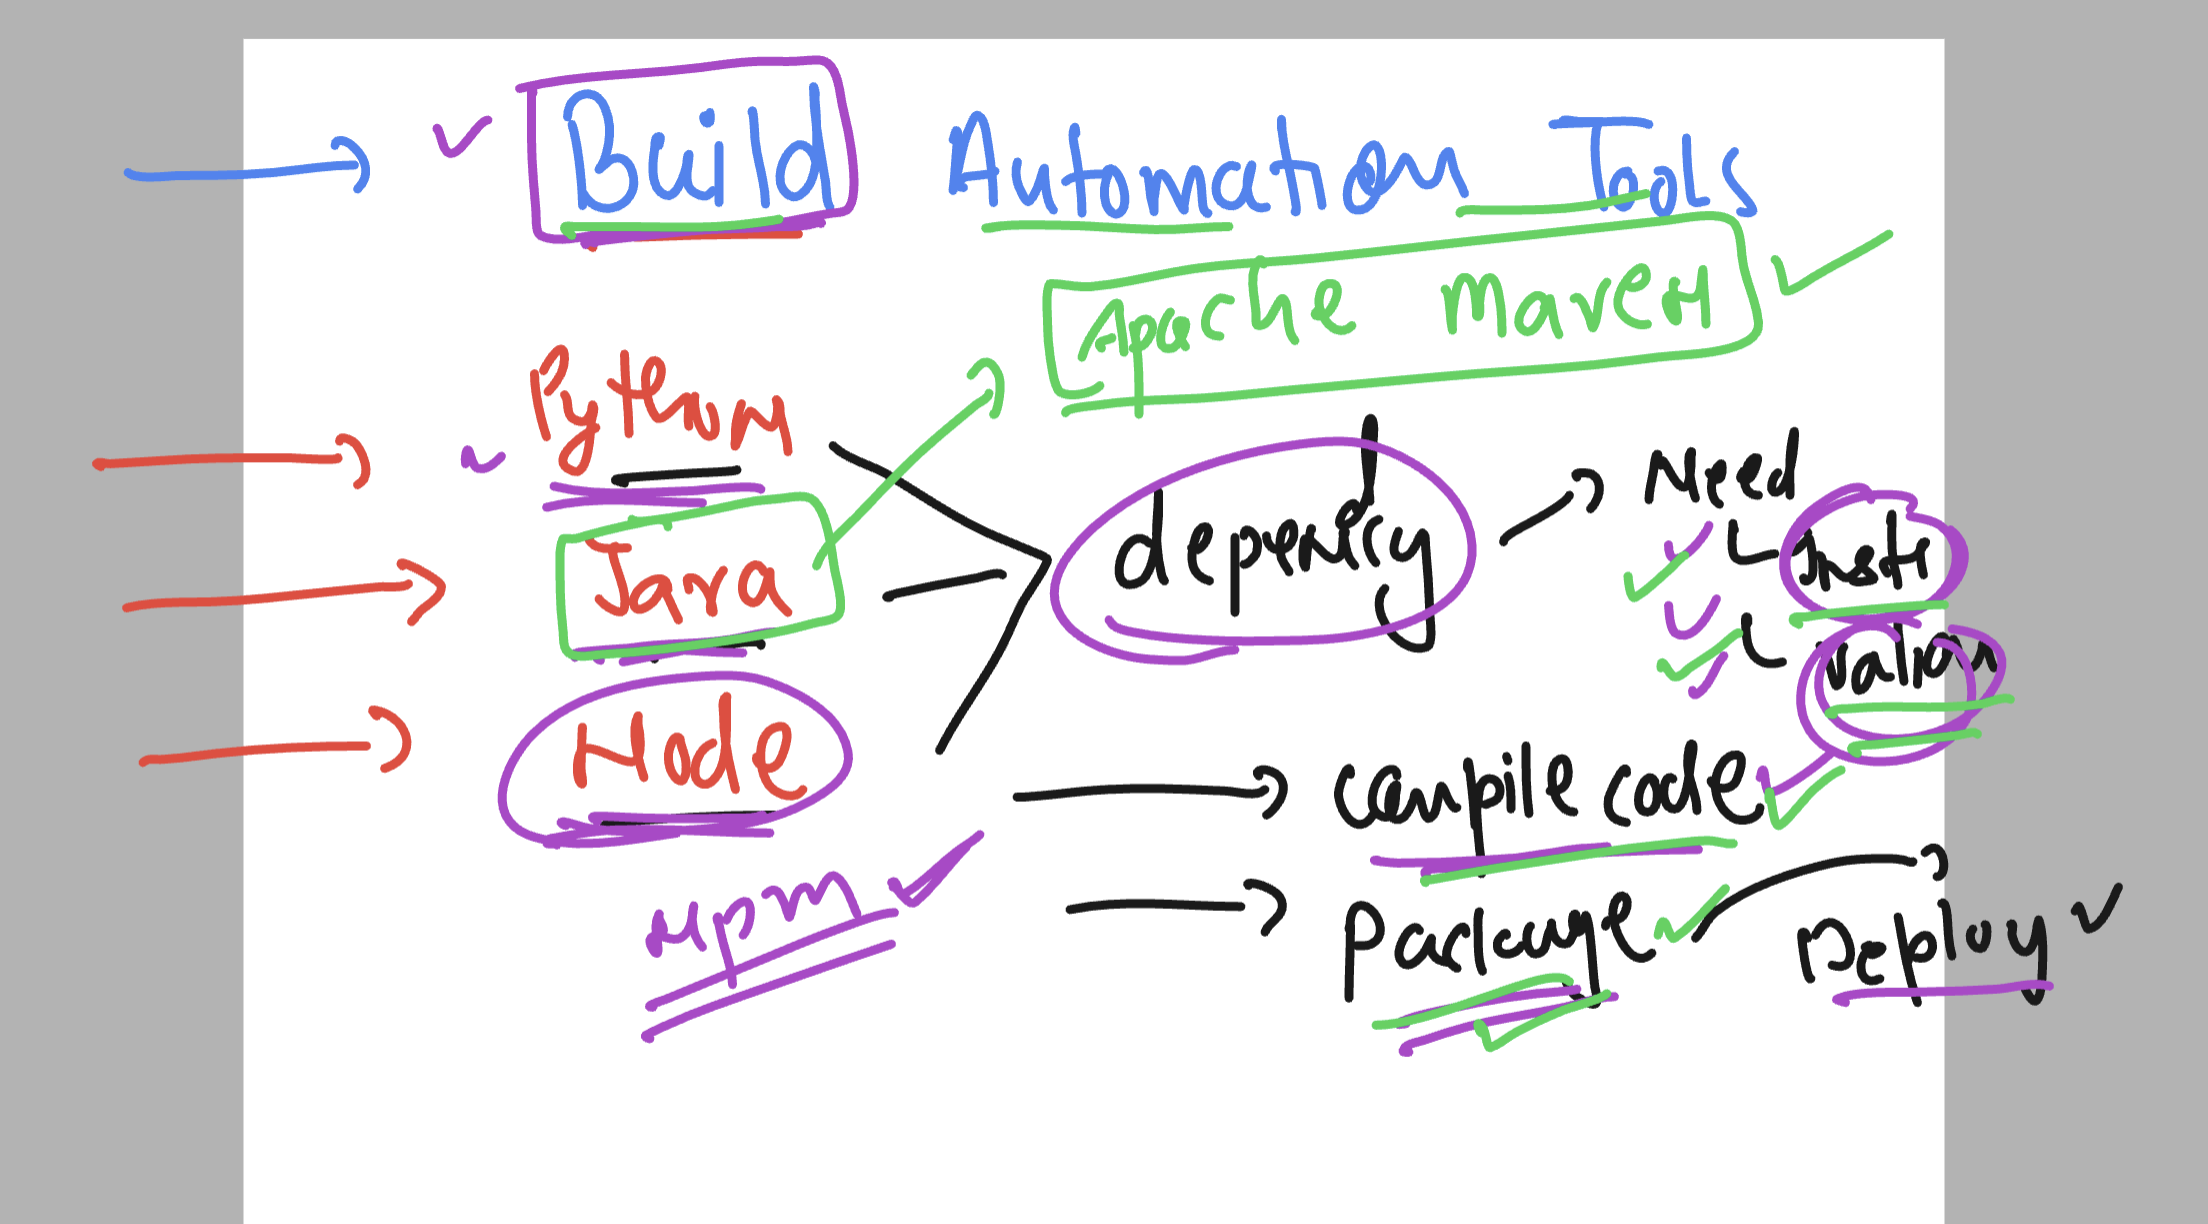 Build Automation Tools
Apache maven
Python
Java
Node
npm
depency
Need
Instr
compile code
package
Deploy